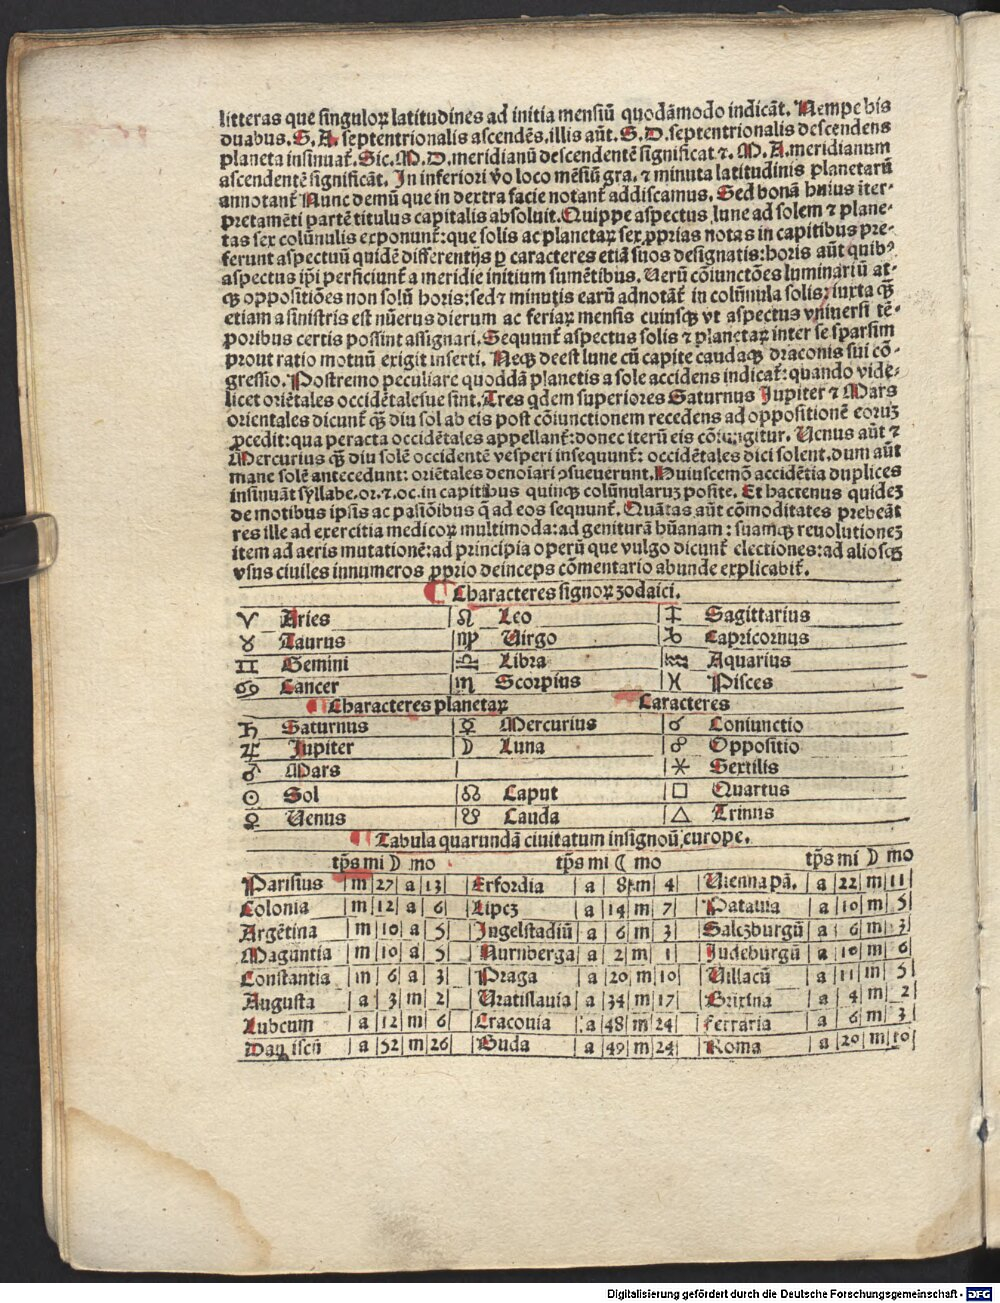 litteras que singuloꝝ latitudines ad initia mensiū quodāmodo indicāt. Nempe bis
duabus. S. A. septentrionalis ascendēs. illis aūt. S. D. septentrionalis descendens
planeta insinuat᷑. Sic. M. D. meridianū descendentē significat ⁊. M. A. meridianum
ascendentē significāt. In inferiori v̄o loco mēsiū gra. ⁊ minuta latitudinis planetarū
annotant᷑ Nunc demū que in dextra facie notant᷑ addiscamus. Sed bonā huius īter-
pretamēti partē titulus capitalis absoluit. Quippe aspectus lune ad solem ⁊ plane-
tas sex colūnulis exponunt᷑: que solis ac planetaꝝ sex ꝓprias notas in capitibus pre-
ferunt aspectuū quidē differentijs ꝑ caracteres etiā suos designatis: horis aūt quibꝰ
aspectus ip̄i perficiunt᷑ a meridie initium sumētibus. Uerū cōiunctōes luminariū at-
qꝫ oppositiōes non solū horis: sed ⁊ minutis earū adnotāt᷑ in colūnula solis: iuxta qꝫ
etiam a sinistris est nūerus dierum ac feriaꝝ mensis cuiusqꝫ vt aspectus vniuersi tē-
poribus certis possint assignari. Sequunt᷑ aspectus solis ⁊ planetaꝝ inter se sparsim
prout ratio motuū exigit inserti. Neqꝫ deest lune cū capite caudaqꝫ draconis sui cō-
gressio. Postremo peculiare quoddā planetis a sole accidens indicat᷑: quando vide-
licet oriētales occidētalesue sint. Tres qdem superiores Saturnus Jupiter ⁊ Mars
orientales dicunt᷑ qꝫ diu sol ab eis post cōiunctionem recedens ad oppositionē eoruꝫ
ꝓcedit: qua peracta occidētales appellant᷑: donec iterū eis cōiungitur. Uenus aūt ⁊
Mercurius qꝫ diu solē occidentē vesperi insequunt᷑: occidētales dici solent. dum aūt
mane solē antecedunt: oriētales denoīari ↄsueuerunt. Huiuscemōi accidētia duplices
insinuāt syllabe. or. ⁊. oc. in capitibus quinqꝫ colūnularuꝫ posite. Et hactenus quideꝫ
de motibus ip̄is ac passiōibus q̄ ad eos sequunt᷑. Quātas aūt cōmoditates prebeāt
res ille ad exercitia medicoꝝ multimoda: ad geniturā hūanam: suamqꝫ reuolutioneꝫ
item ad aeris mutationē: ad principia operū que vulgo dicunt᷑ electiones: ad aliosqꝫ
vsus ciuiles innumeros ꝓprio deinceps cōmentario abunde explicabit᷑.
¶ Characteres signoꝝ zodaici.
♈ Aries | ♌ Leo | ♐ Sagittarius
♉ Taurus | ♍ Uirgo | ♑ Capricornus
♊ Gemini | ♎ Libra | ♒ Aquarius
♋ Cancer | ♏ Scorpius | ♓ Pisces
¶ Characteres planetaꝝ Caracteres
♄ Saturnus | ☿ Mercurius | ☌ Coniunctio
♃ Jupiter | ☽ Luna | ☍ Oppositio
♂ Mars | | ⚹ Sextilis
☉ Sol | ☊ Caput | □ Quartus
♀ Uenus | ☋ Cauda | △ Trinus
¶ Tabula quarundā ciuitatum insignoū europe.
tp̄s mi ☽ mo tp̄s mi ☾ mo tp̄s mi ☽ mo
Parisius | m | 27 | a | 13 | Erfordia | a | 8 | m | 4 | Uienna pā. | a | 22 | m | 11
Colonia | m | 12 | a | 6 | Lipcꝫ | a | 14 | m | 7 | Patauia | a | 10 | m | 5
Argētina | m | 10 | a | 5 | Ingelstadiū | a | 6 | m | 3 | Salczburgū | a | 6 | m | 3
Maguntia | m | 10 | a | 5 | Nurnberga | a | 2 | m | 1 | Judeburgū | a | 10 | m | 6
Constantia | m | 6 | a | 3 | Praga | a | 20 | m | 10 | Uillacū | a | 11 | m | 5
Augusta | a | 3 | m | 2 | Uratislauia | a | 34 | m | 17 | Brixina | a | 4 | m | 2
Lubcum | a | 12 | m | 6 | Craconia | a | 48 | m | 24 | Ferraria | a | 6 | m | 3
| a | 52 | m | 26 | Buda | a | 49 | m | 24 | Roma | a | 20 | m | 10
Digitalisierung gefördert durch die Deutsche Forschungsgemeinschaft - DFG